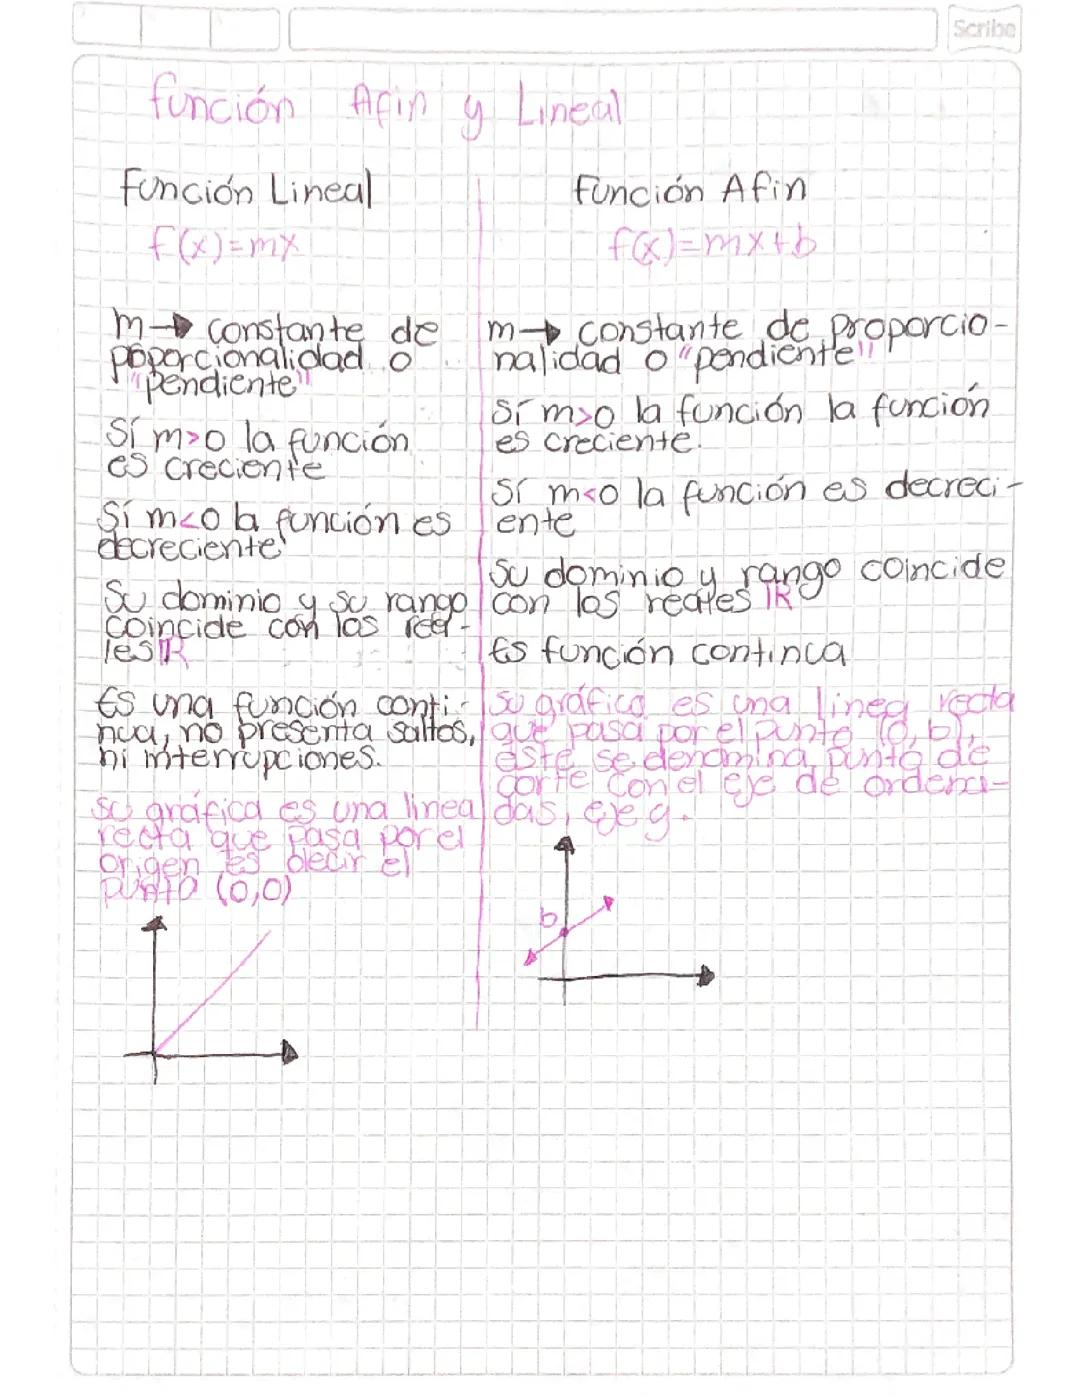 Scribe
función Afin y Lineal
Función Lineal
f(x)=mx
m→ constante de
poporcionalidad o
"pendiente"
Sí m>0 la función
es creciente
Sí m<0 la función es
decreciente
Su dominio y su rango
coincide con los reer-
les ℝ
Es una función conti-
nua, no presenta saltos,
ni interrupciones.
su gráfica es una linea
recta que pasa por el
origen es decir el
punto (0,0)
Función Afin
f(x)=mx+b
m→ constante de proporcio-
nalidad o "pendiente"
Sí m>0 la función la función
es creciente.
Sí m<0 la función es decreci-
ente
Su dominio y rango coincide
con los reales ℝ
Es función continua
su gráfica es una linea recta
que pasa por el punto (0,b),
este se denomina punto de
corte con el eje de ordena-
das, eje y.
b